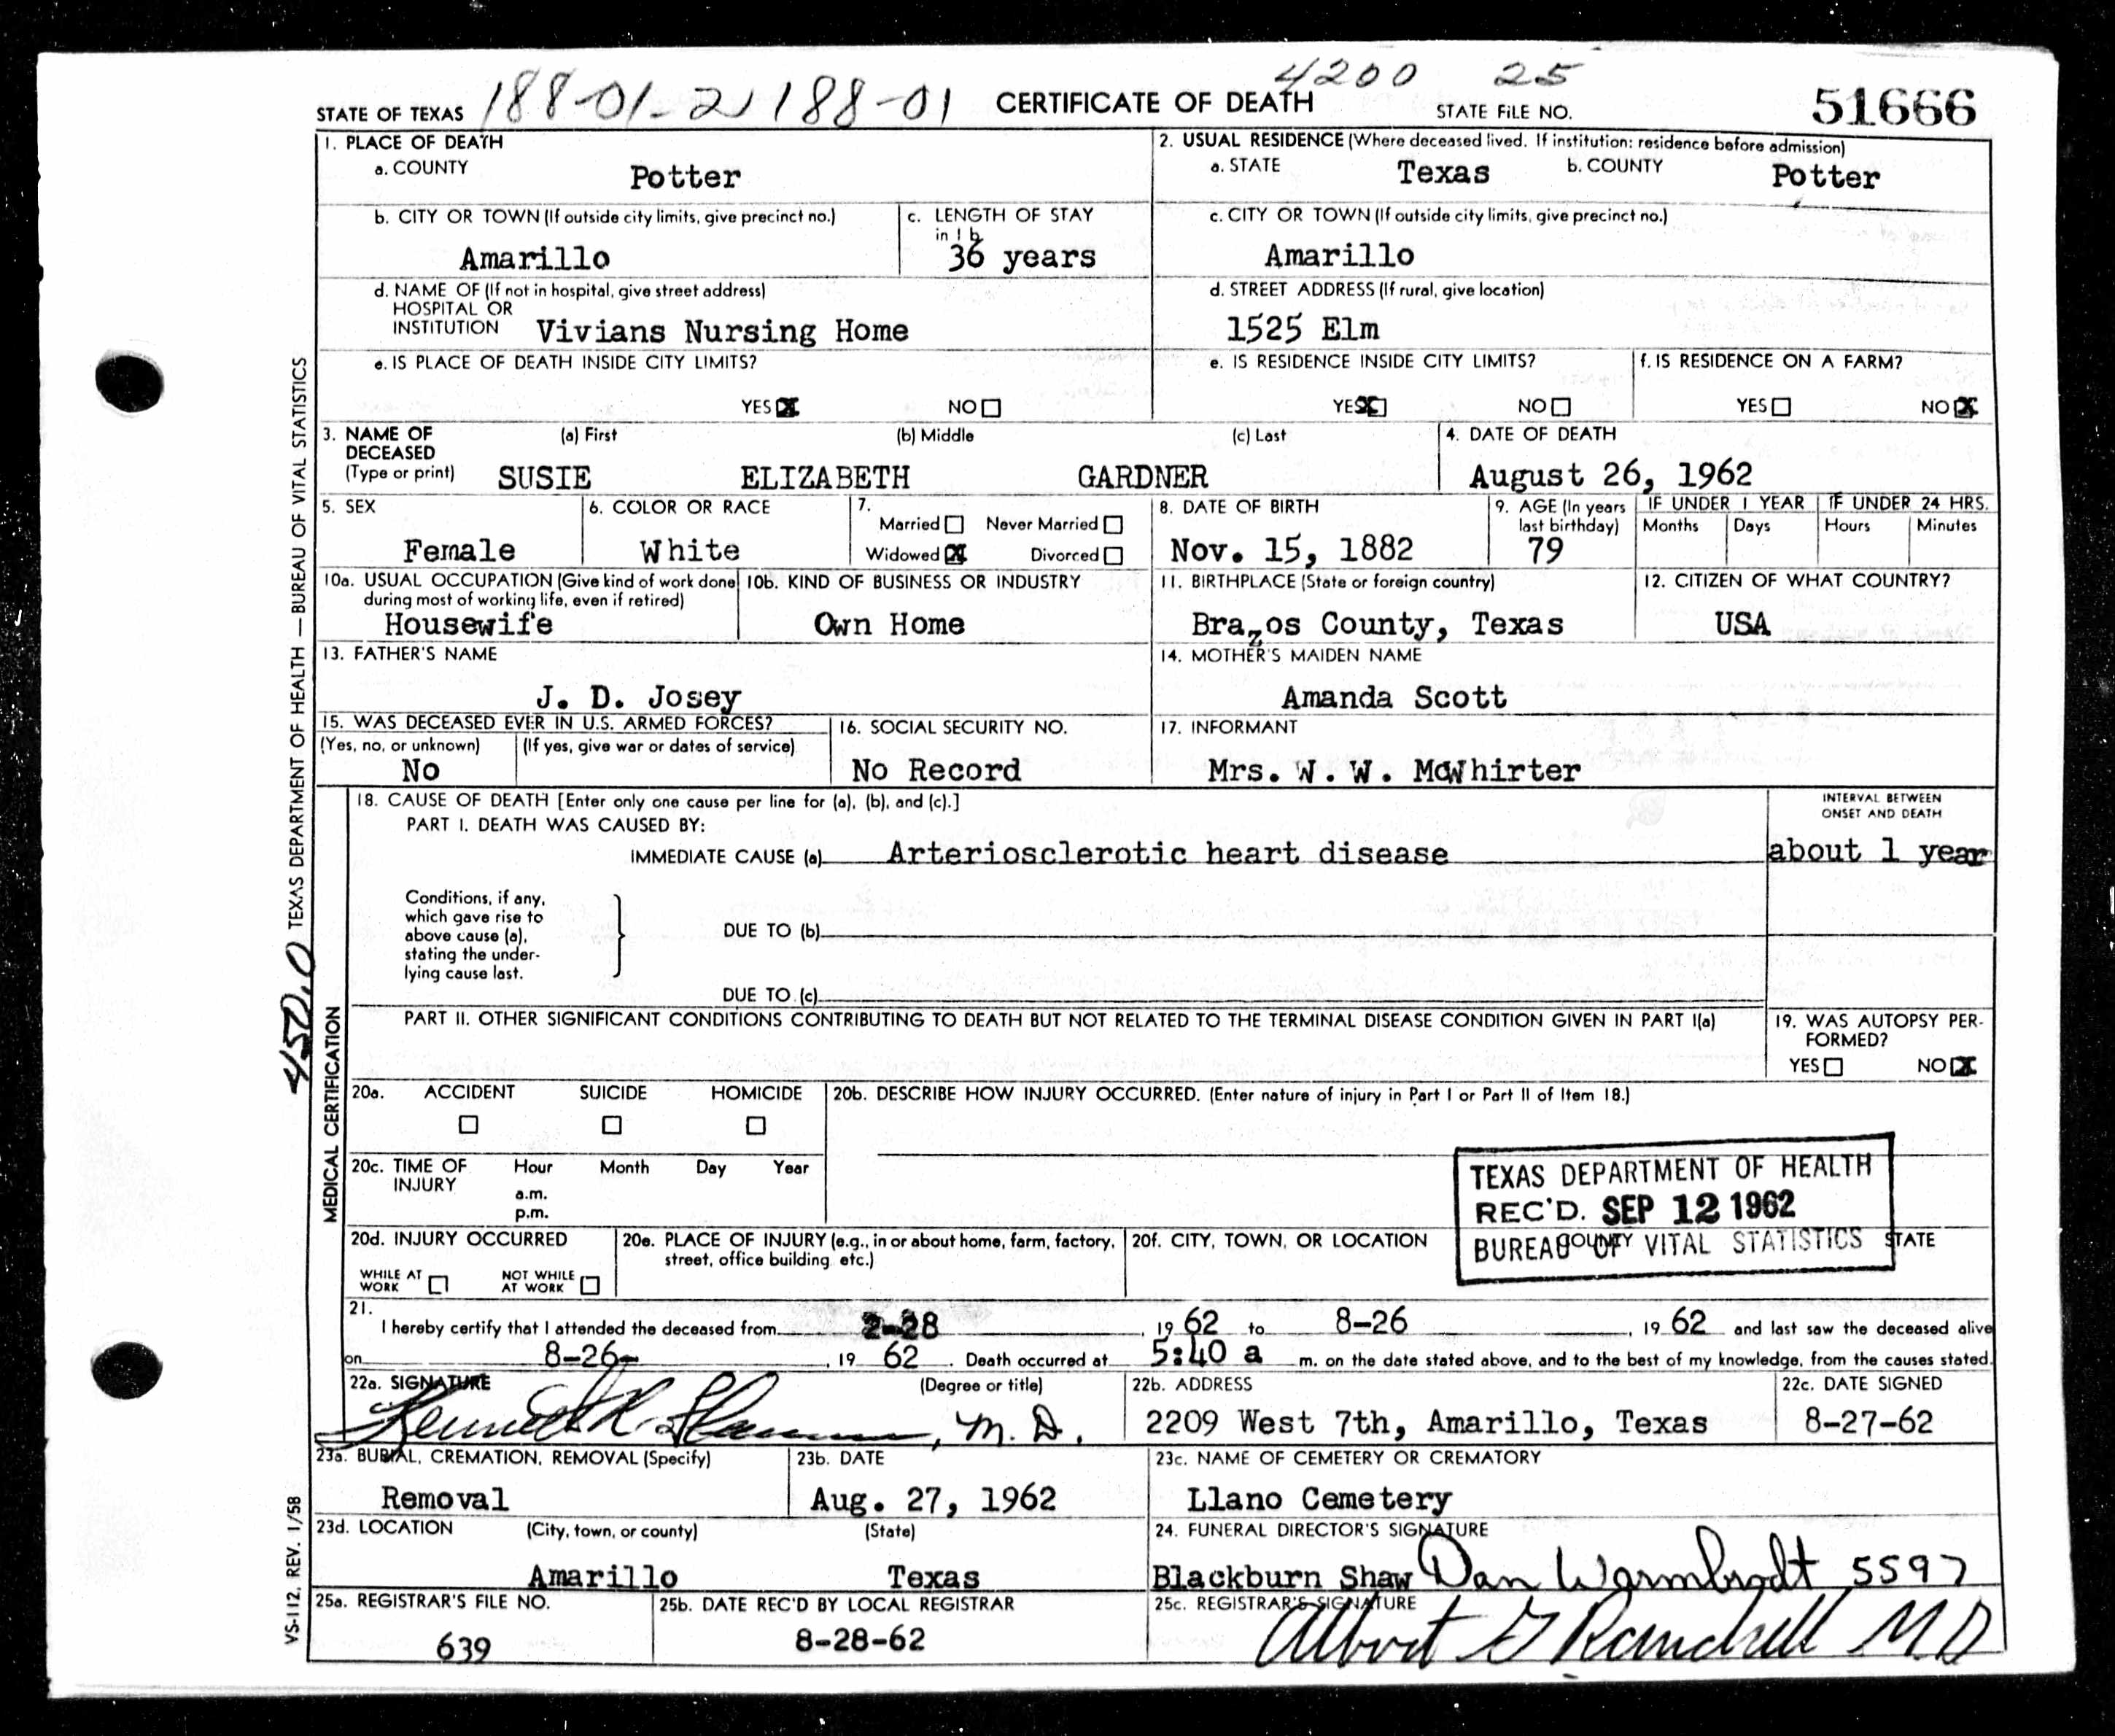 4200 25
STATE OF TEXAS 188-01-2 188-01 CERTIFICATE OF DEATH STATE FILE NO. 51666
1. PLACE OF DEATH
a. COUNTY Potter
2. USUAL RESIDENCE (Where deceased lived. If institution: residence before admission)
a. STATE Texas b. COUNTY Potter
b. CITY OR TOWN (If outside city limits, give precinct no.)
Amarillo
c. LENGTH OF STAY
in 1 b
36 years
c. CITY OR TOWN (If outside city limits, give precinct no.)
Amarillo
d. NAME OF (If not in hospital, give street address)
HOSPITAL OR
INSTITUTION Vivians Nursing Home
d. STREET ADDRESS (If rural, give location)
1525 Elm
e. IS PLACE OF DEATH INSIDE CITY LIMITS?
YES X NO
e. IS RESIDENCE INSIDE CITY LIMITS?
YES X NO
f. IS RESIDENCE ON A FARM?
YES NO X
3. NAME OF
DECEASED
(Type or print)
(a) First (b) Middle (c) Last
SUSIE ELIZABETH GARDNER
4. DATE OF DEATH
August 26, 1962
5. SEX
Female
6. COLOR OR RACE
White
7.
Married Never Married
Widowed X Divorced
8. DATE OF BIRTH
Nov. 15, 1882
9. AGE (In years
last birthday)
79
IF UNDER 1 YEAR
Months Days
IF UNDER 24 HRS.
Hours Minutes
10a. USUAL OCCUPATION (Give kind of work done
during most of working life, even if retired)
Housewife
10b. KIND OF BUSINESS OR INDUSTRY
Own Home
11. BIRTHPLACE (State or foreign country)
Brazos County, Texas
12. CITIZEN OF WHAT COUNTRY?
USA
13. FATHER'S NAME
J. D. Josey
14. MOTHER'S MAIDEN NAME
Amanda Scott
15. WAS DECEASED EVER IN U.S. ARMED FORCES?
(Yes, no, or unknown) (If yes, give war or dates of service)
No
16. SOCIAL SECURITY NO.
No Record
17. INFORMANT
Mrs. W. W. McWhirter
18. CAUSE OF DEATH [Enter only one cause per line for (a), (b), and (c).]
PART I. DEATH WAS CAUSED BY:
IMMEDIATE CAUSE (a) Arteriosclerotic heart disease
INTERVAL BETWEEN
ONSET AND DEATH
about 1 year
Conditions, if any,
which gave rise to
above cause (a),
stating the under-
lying cause last.
DUE TO (b)
DUE TO (c)
PART II. OTHER SIGNIFICANT CONDITIONS CONTRIBUTING TO DEATH BUT NOT RELATED TO THE TERMINAL DISEASE CONDITION GIVEN IN PART I(a)
19. WAS AUTOPSY PER-
FORMED?
YES NO X
20a. ACCIDENT SUICIDE HOMICIDE
20b. DESCRIBE HOW INJURY OCCURRED. (Enter nature of injury in Part I or Part II of Item 18.)
20c. TIME OF
INJURY
Hour Month Day Year
a.m.
p.m.
TEXAS DEPARTMENT OF HEALTH
REC'D. SEP 12 1962
BUREAU OF VITAL STATISTICS
20d. INJURY OCCURRED
WHILE AT
WORK
NOT WHILE
AT WORK
20e. PLACE OF INJURY (e.g., in or about home, farm, factory,
street, office building etc.)
20f. CITY, TOWN, OR LOCATION COUNTY STATE
21.
I hereby certify that I attended the deceased from 2-28, 19 62 to 8-26, 19 62 and last saw the deceased alive
on 8-26-, 19 62. Death occurred at 5:40 a m. on the date stated above, and to the best of my knowledge, from the causes stated.
22a. SIGNATURE (Degree or title)
Kenneth R. , M. D.
22b. ADDRESS
2209 West 7th, Amarillo, Texas
22c. DATE SIGNED
8-27-62
23a. BURIAL, CREMATION, REMOVAL (Specify)
Removal
23b. DATE
Aug. 27, 1962
23c. NAME OF CEMETERY OR CREMATORY
Llano Cemetery
23d. LOCATION (City, town, or county) (State)
Amarillo Texas
24. FUNERAL DIRECTOR'S SIGNATURE
Blackburn Shaw Dan Warmbrodt 5597
25a. REGISTRAR'S FILE NO.
639
25b. DATE REC'D BY LOCAL REGISTRAR
8-28-62
25c. REGISTRAR'S SIGNATURE
Albert G Randall M D
TEXAS DEPARTMENT OF HEALTH — BUREAU OF VITAL STATISTICS
450.0
MEDICAL CERTIFICATION
VS-112. REV. 1/58